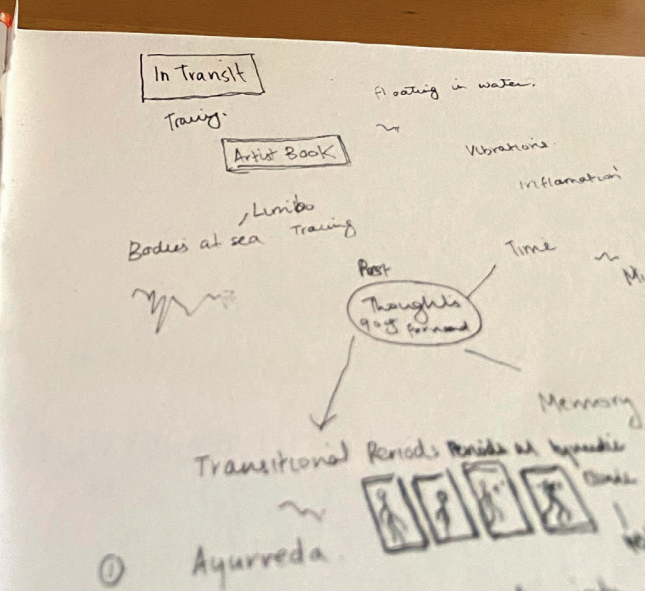 In Transit
Floating in water.
Tracing.
Artist Book
Vibrations
Inflamation
, Limbo
Bodies at sea Tracing
Time
Past
Thoughts
forward
Memory
Transitional Periods
Ayurveda
1